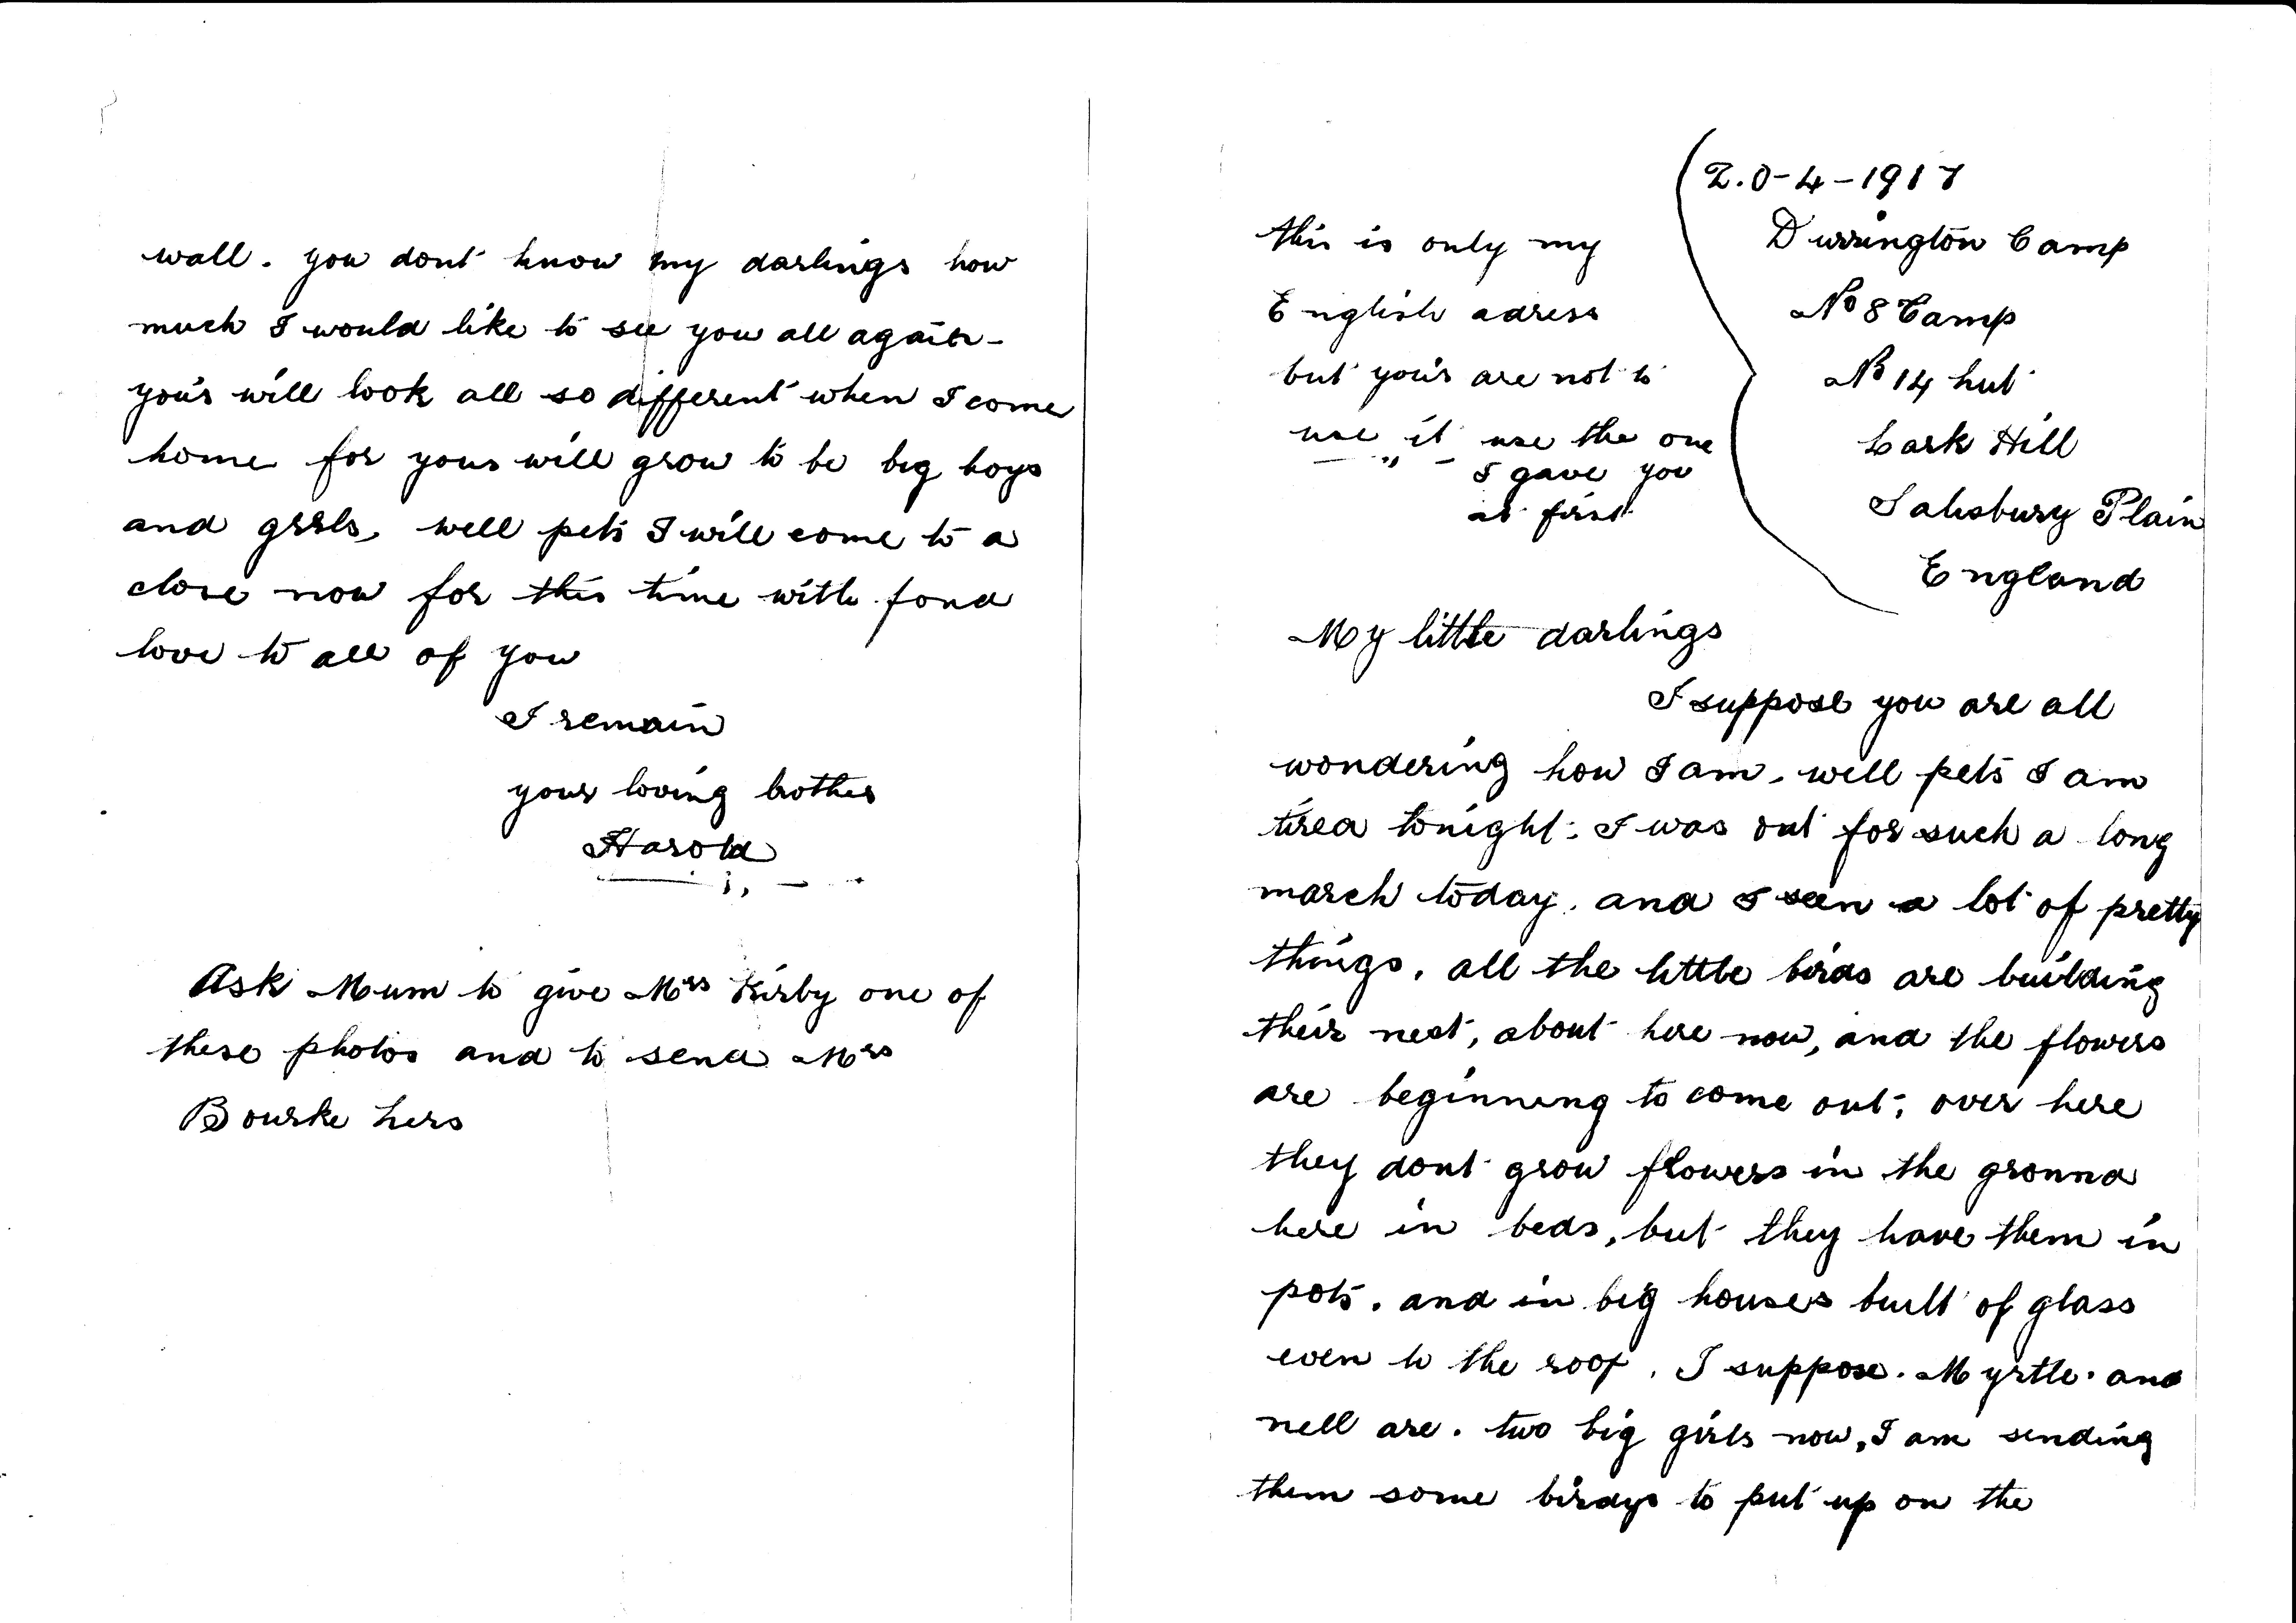 2.0-4-1917
Durrington Camp
No 8 Camp
No 14 hut
Lark Hill
Salisbury Plain
England
this is only my
English adress
but yous are not to
use it use the one
I gave you
at first
My little darlings
I suppose you are all
wondering how I am. well pets I am
tired tonight. I was out for such a long
march today. and I seen a lot of pretty
things. all the little birds are building
their nest, about here now, and the flowers
are beginning to come out, over here
they dont grow flowers in the ground
here in beds, but they have them in
pots. and in big houses built of glass
even to the roof. I suppose. Myrtle. and
nell are. two big girls now, I am sending
them some birdys to put up on the
wall. you dont know my darlings how
much I would like to see you all again-
yous will look all so different when I come
home for yous will grow to be big boys
and girls, well pets I will come to a
close now for this time with fond
love to all of you
I remain
your loving brother
Harold
Ask Mum to give Mrs Kirby one of
these photos and to send Mrs
Bourke hers